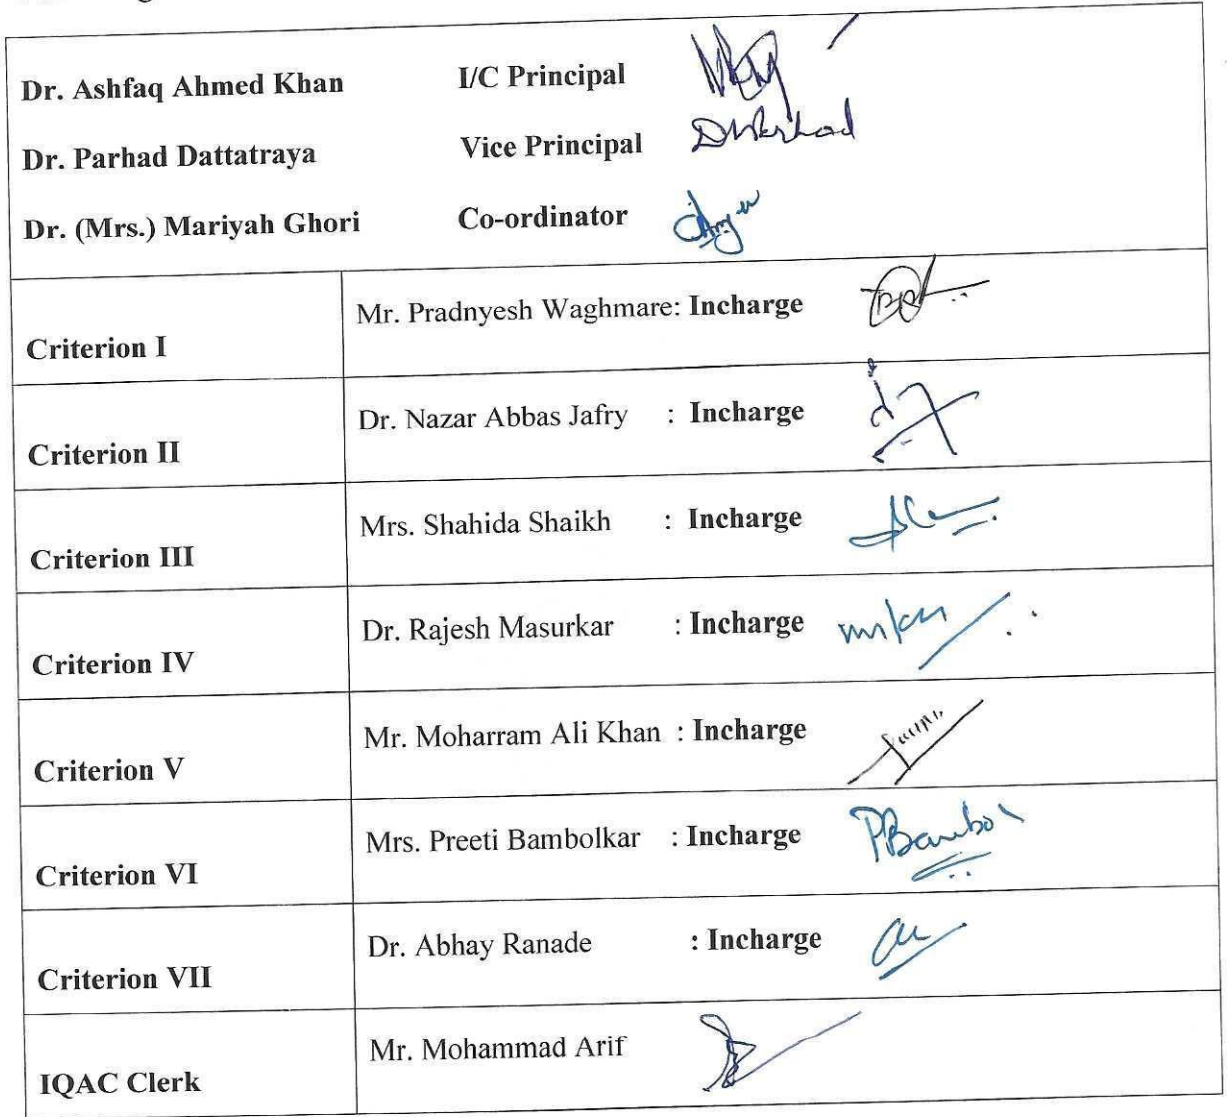 Dr. Ashfaq Ahmed Khan I/C Principal
Dr. Parhad Dattatraya Vice Principal
Dr. (Mrs.) Mariyah Ghori Co-ordinator
Criterion I Mr. Pradnyesh Waghmare: Incharge
Criterion II Dr. Nazar Abbas Jafry : Incharge
Criterion III Mrs. Shahida Shaikh : Incharge
Criterion IV Dr. Rajesh Masurkar : Incharge
Criterion V Mr. Moharram Ali Khan : Incharge
Criterion VI Mrs. Preeti Bambolkar : Incharge
Criterion VII Dr. Abhay Ranade : Incharge
IQAC Clerk Mr. Mohammad Arif